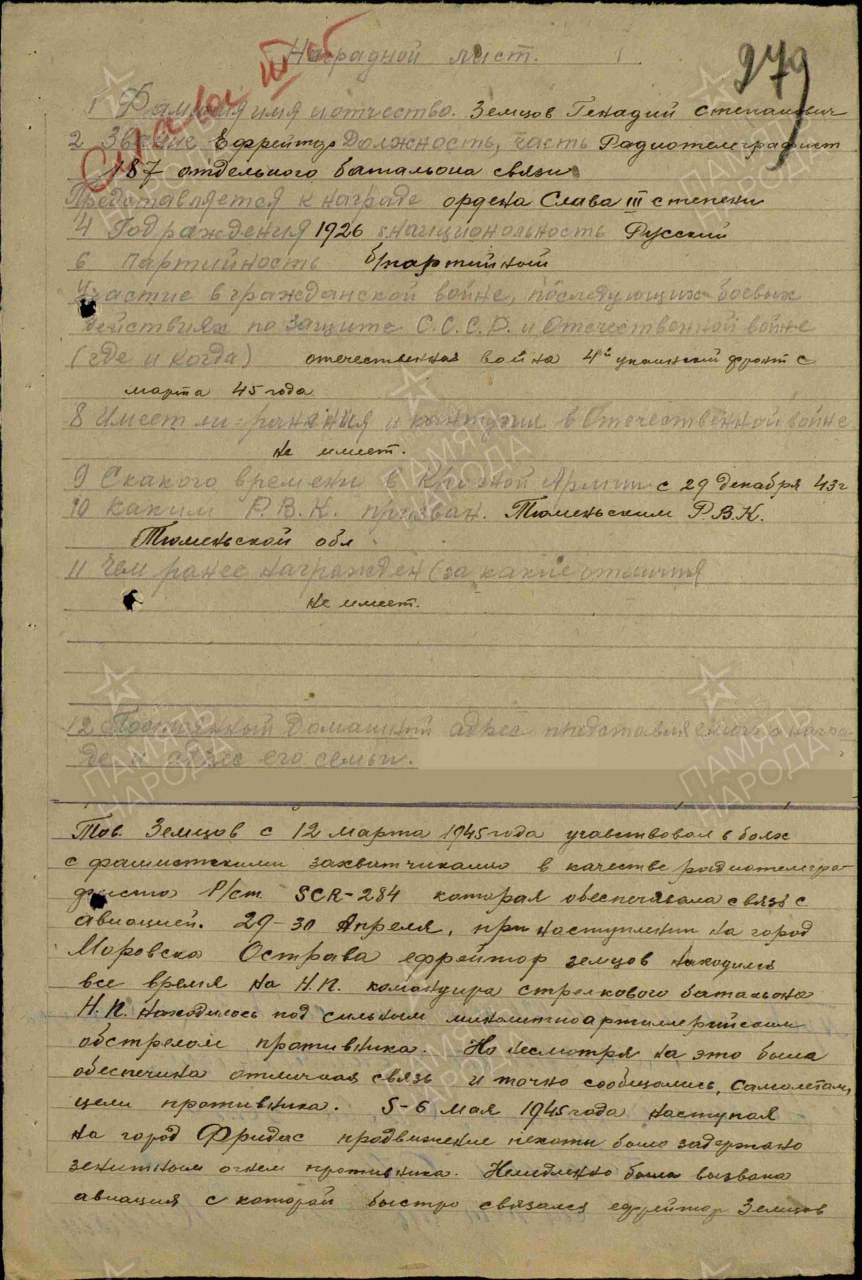 Слава III ст
Наградной лист.
279
1 Фамилия имя и отчество. Земцов Генадий Степанович
2 Звание Ефрейтор Должность, часть Радиотелеграфист
187 отдельного батальона связи
Представляется к награде ордена Слава III степени
4 Год рождения 1926 национольность Русский
6 Партийность б/партийной
Участие в гражданской войне, последующих боевых
действиях по защите С.С.С.Р. и Отечественной войне
(где и когда) отечественная война 4й украинский фронт с
марта 45 года
8 Имеет ли ранения и контузии в Отечественной войне
не имеет.
9 С какого времени в Красной Армии с 29 декабря 43 г
10 Каким Р.В.К. призван. Тюменьским Р.В.К.
Тюменьской обл
11 Чем ранее награжден (за какие отличия
не имеет.
12 Постоянный Домашний адрес представляемого к награ-
де и адрес его семьи.
Тов. Земцов с 12 марта 1945 года учавствовал в боях
с фашистскими захватчиками в качестве радиотелегра-
фиста Р/ст SCR-284 которая обеспечавала связь с
авиацией. 29-30 Апреля, при наступлении на город
Моровска Острава ефрейтор Земцов находился
все время на Н.П. командира стрелкового батальона
Н.П. находилось под сильным минометноартиллерийским
обстрелом противника. Но несмотря на это была
обеспечина отличная связь и точно сообщались, самолетам,
цели противника. 5-6 мая 1945 года наступая
на город Фридас продвижение пехоты было задержано
зенитным огнем противника. Немедленно была вызвана
авиация с которой быстро связался ефрейтор Земцов
ПАМЯТЬ НАРОДА